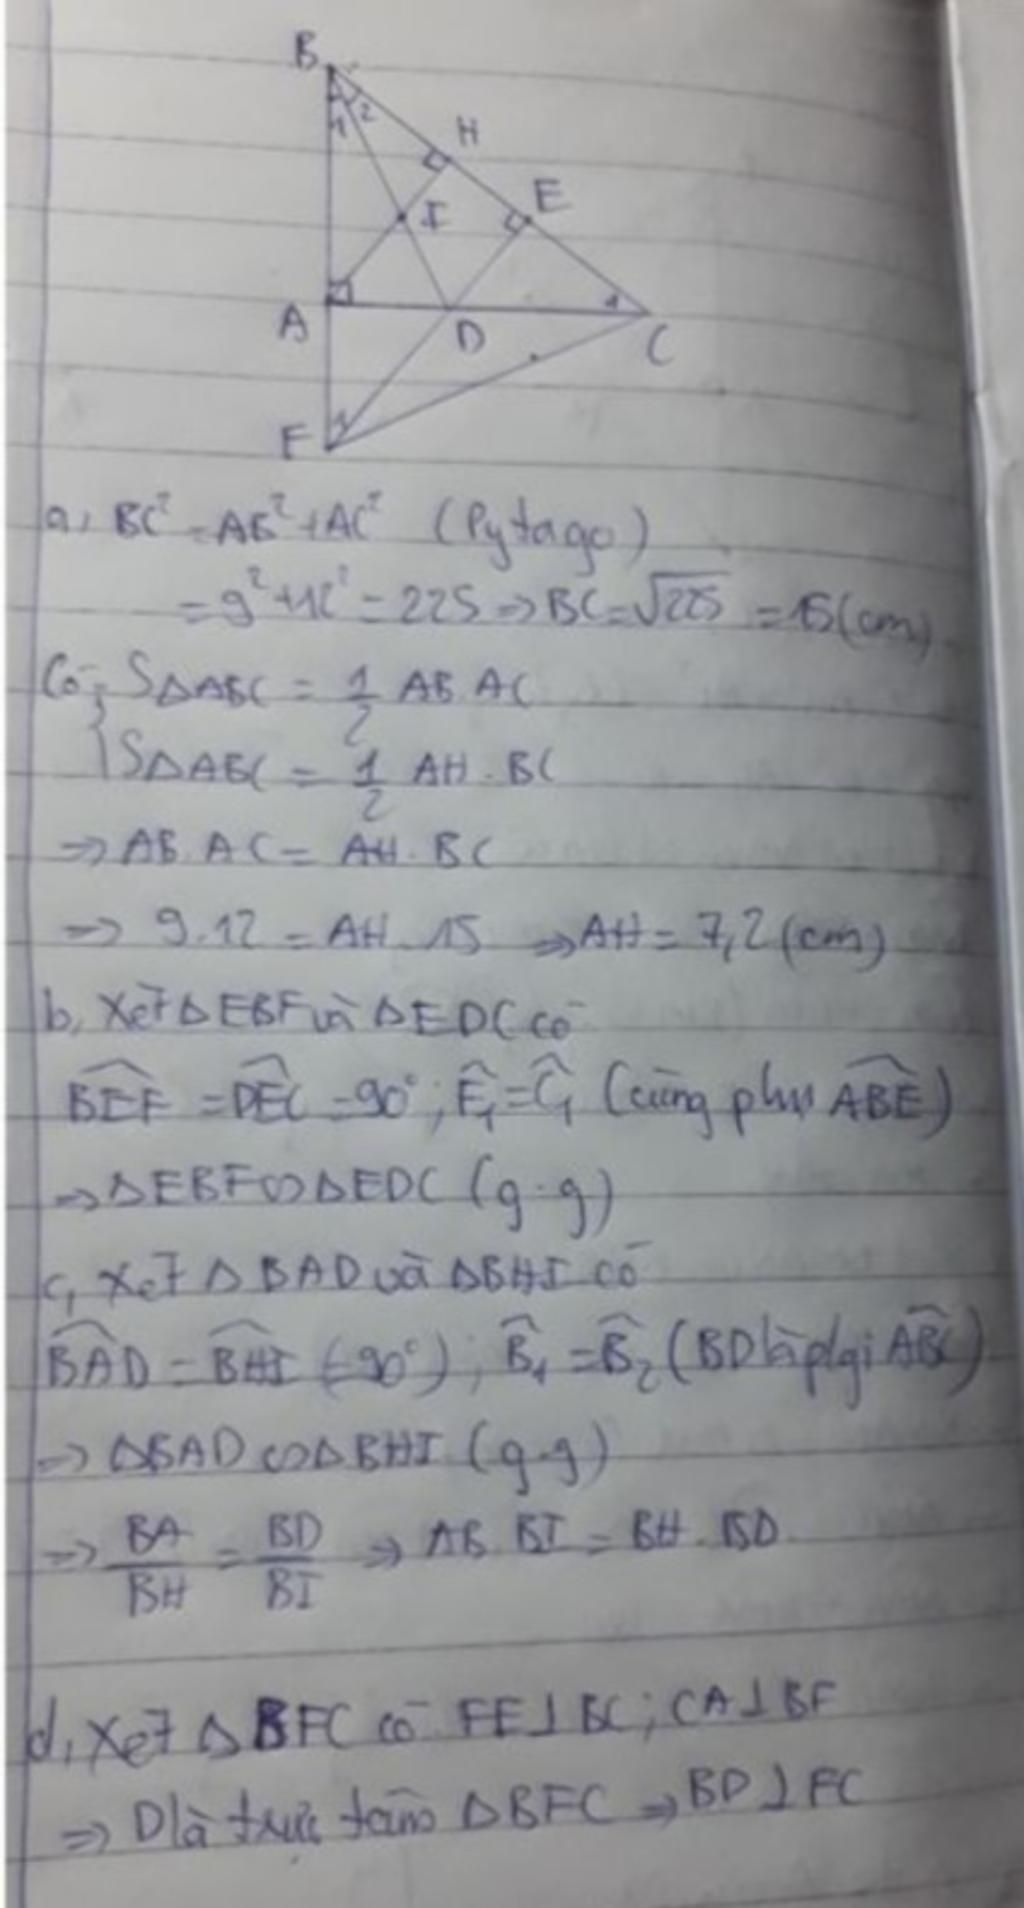 B
1 2
H
E
I
A
D
1
C
1
F
a, BC² = AB² + AC² (Pytago)
= 9² + 12² = 225 => BC = √225 = 15 (cm)
Có: { SΔABC = 1/2 AB.AC
SΔABC = 1/2 AH.BC
=> AB.AC = AH.BC
=> 9.12 = AH.15 => AH = 7,2 (cm)
b, Xét ΔEBF và ΔEDC có
BEF̂ = DEĈ = 90°; F̂₁ = Ĉ₁ (cùng phụ ABÊ)
=> ΔEBF ∽ ΔEDC (g.g)
c, Xét ΔBAD và ΔBHI có
BAD̂ = BHÎ (= 90°); B̂₁ = B̂₂ (BD là p/gi ABĈ)
=> ΔBAD ∽ ΔBHI (g.g)
=> BA/BH = BD/BI => AB.BI = BH.BD
d, Xét ΔBFC có FE⊥BC; CA⊥BF
=> D là trực tâm ΔBFC => BD⊥FC